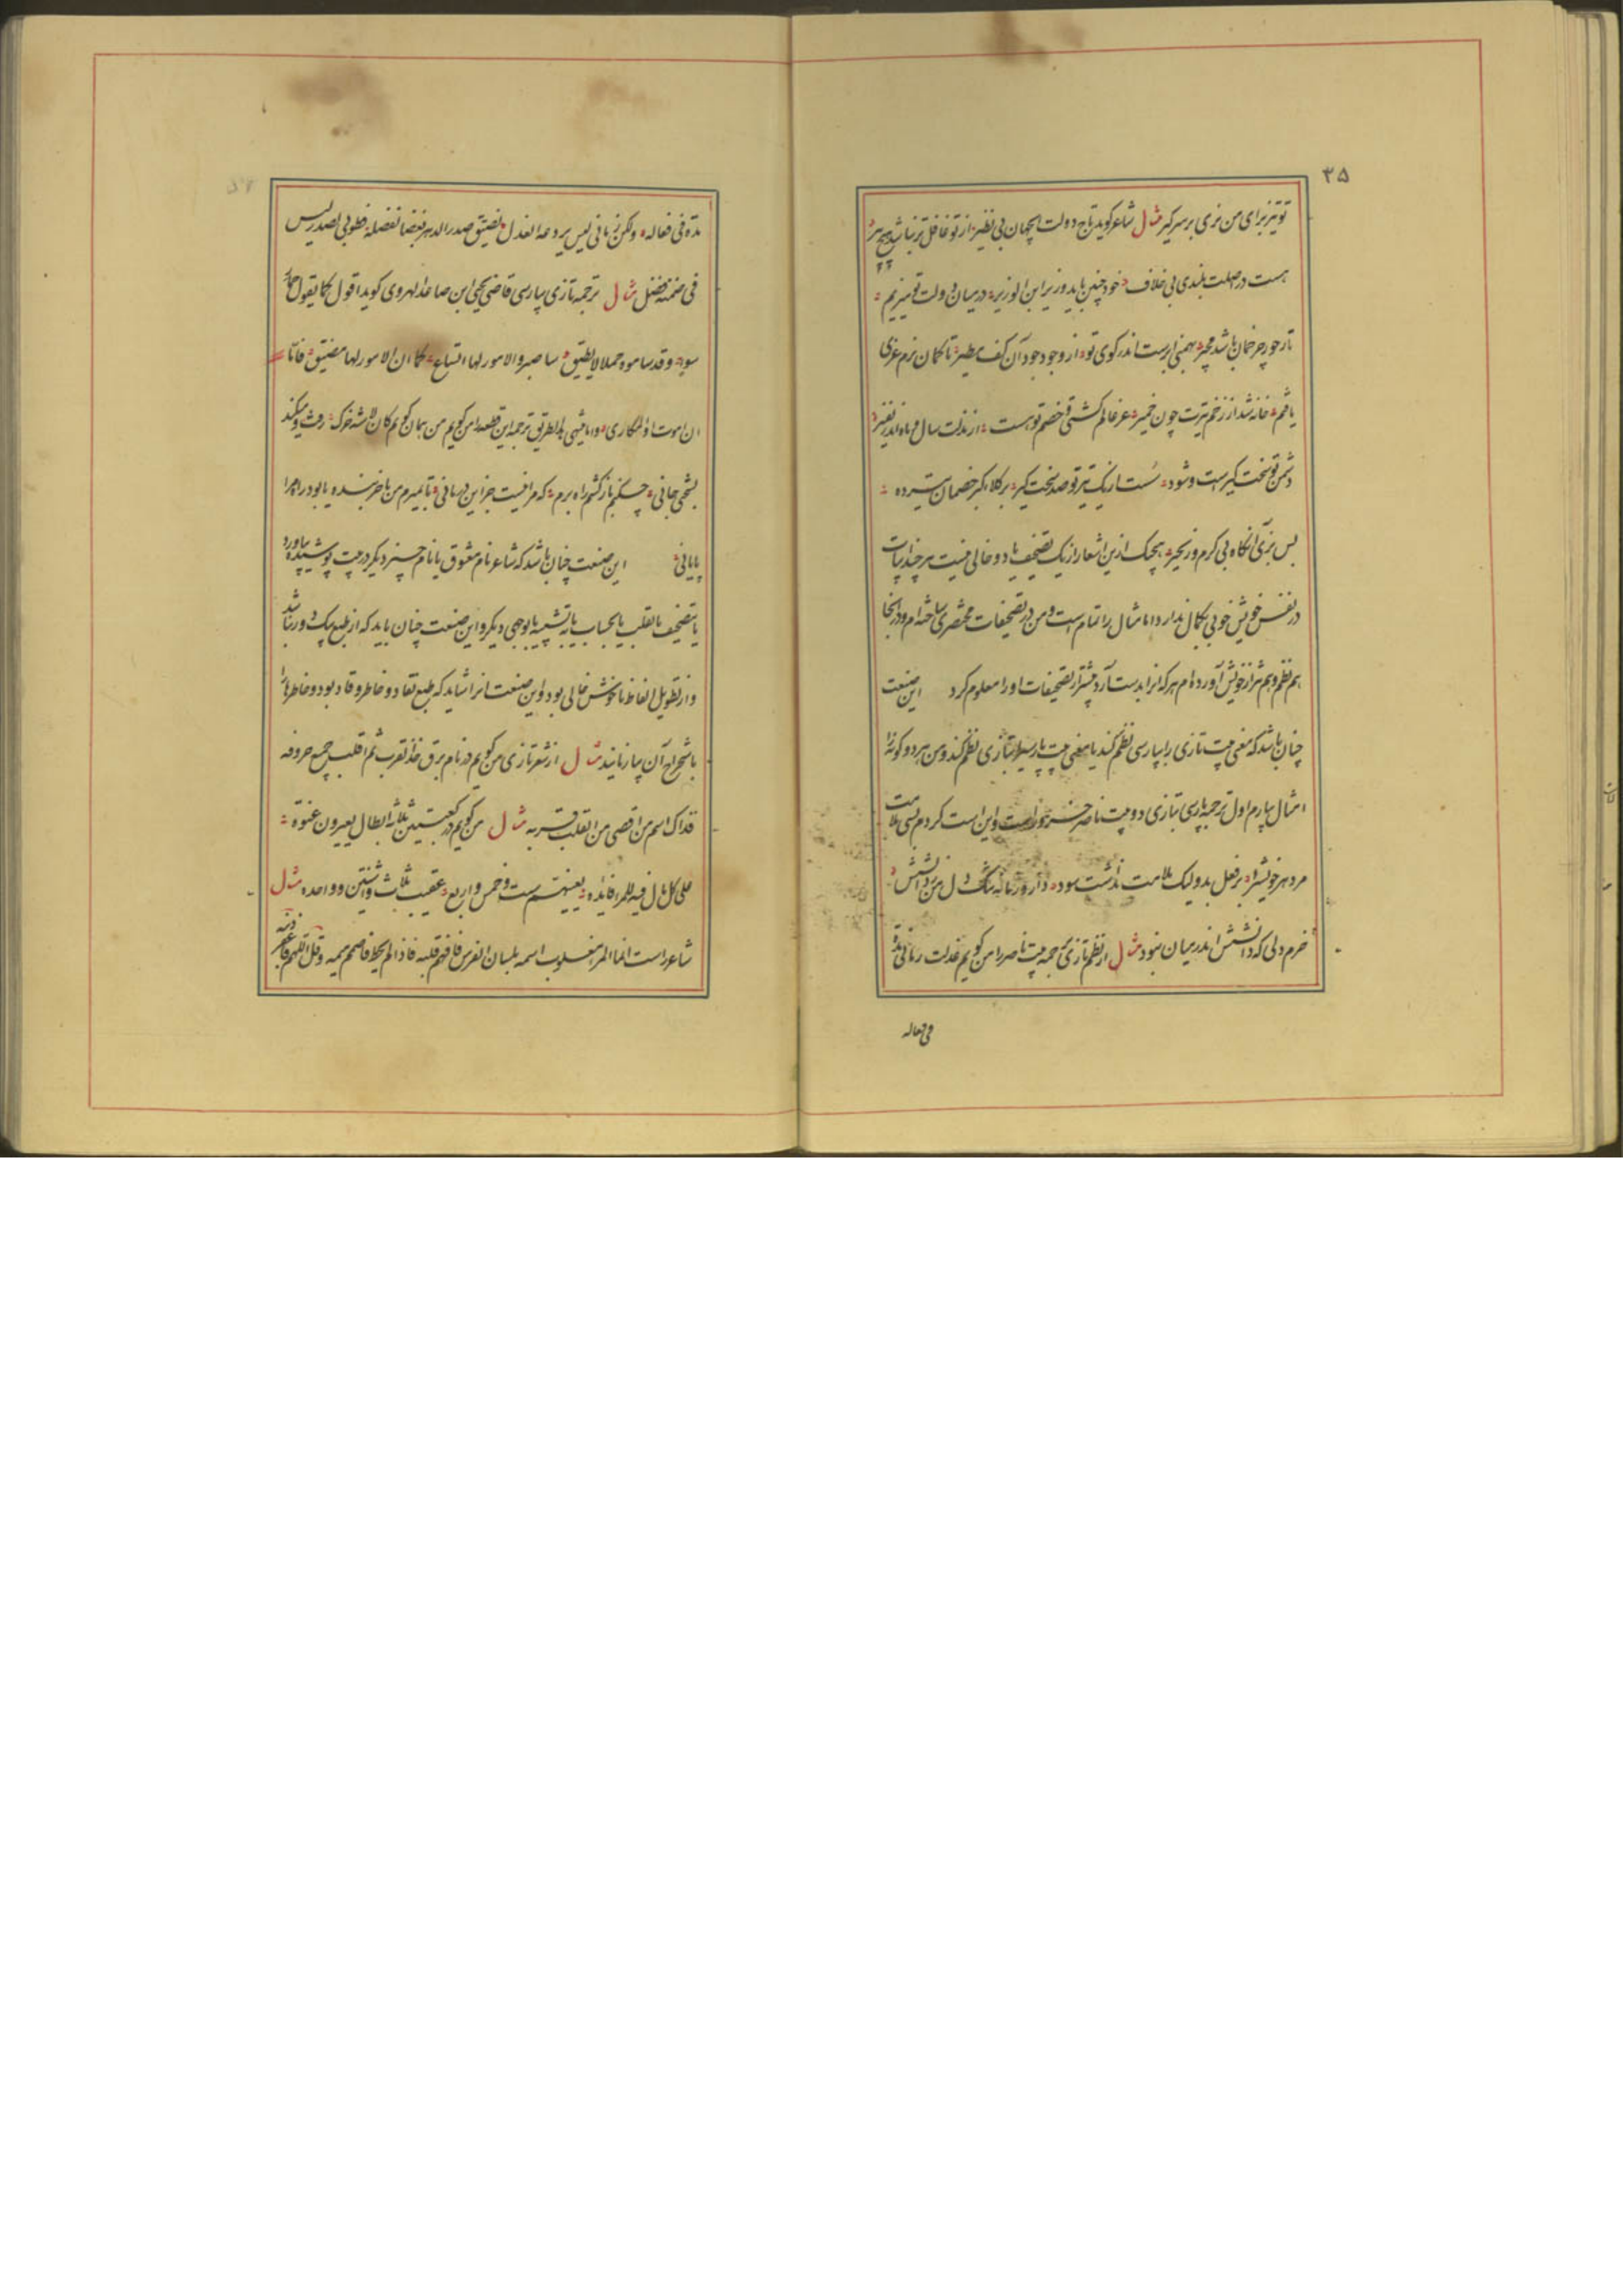 ۳۵
تو تیز برای من نری بر سر کیر مثال شاعر کوید تاج دولت ای جهان بی نظیر از تو غافل تر نباشد هیچ
هست در اصلت بلندی بی خلاف خود چنین باید وزیر ابن الوزیر در میان دولت تو میزیم
تا ز جور چرخمان باشد مجیر بهمنی ابرست اندر کوی تو از وجود جود آن کف مطیر تا کمان نرم غزی
یافتم خانه شد از زخم تیرت چون خمیر عز عالم کشتی و خصم تو هست از مذلت سال و ماه اندر نفیر
دشمن تو سخت کیر است و شود سست از یک تیر تو صد سخت کیر
پس بزی آنکاه بی کرم و زحیر هیچیک ازین اشعار از یک تصحیف یا دو خالی نیست هر چند ابیات
در نفس خویش خوبی بکمال ندارد اما مثال را تمام است و من در تصحیفات مختصری ساخته‌ام و در انجا
هم نظم و هم نثر از خویش آورده ام هر که انرا بدست آرد بیشتر از تصحیفات او را معلوم کردد این صنعت
چنان باشد که معنی بیت تازی را بپارسی نظم کند یا معنی بیت پارسی را بتازی نظم کند و من هر دو کونه را
امثال بیارم اول ترجمه پارسی بتازی دو بیت ناصر خسرو راست و این است کردم بسی ملامت
مر دهر خویش را بر فعل بد ولیک ملامت نداشت سود دارد زمانه تنک دل من ز دانشش
خرم دلی که دانشش اندر میان نبود مثال از نظم تازی ترجمه بیت ناصر را من کویم عذلت زمانی مدة
فی فعاله
مدة فی فعاله ولکن زمانی لیس یردعه العذل یضیق صدر الدهر بغضا لفضله فطوبی لصدر لیس
فی ضمنه فضل مثال ترجمه تازی بپارسی قاضی یحیی ابن صاعد الهروی کوید اقول کما یقول حمار
سوء وقد ساموه حملا لا یطیق ساصبر والامور لها اتساع کما ان الامور لها مضیق فاما
ان اموت او المکاری واما ینتهی هذا الطریق ترجمه این قطعه را من کویم من همان کویم کان لاشه خرک کفت و میکند
بسختی جانی چه کنم بار کشم راه برم که مرا نیست جز این درمانی یا بمیرم من یا خر بنده یا بود راه مرا
پایانی این صنعت چنان باشد که شاعر نام معشوق یا نام چیز دیکر در بیت پوشیده بیاورد
یا بتصحیف یا بقلب یا بحساب یا بتشبیه یا بوجهی دیکر و این صنعت چنان باید که از طبع پاک دور نباشد
و از تطویل الفاظ ناخوش خالی بود و این صنعت انرا شاید که طبع نقاد و خاطر وقاد بود و خاطرها را
باستخراج آن بیازمایند مثال از شعر تازی من کویم در نام برق خذ القرب ثم اقلب جمیع حروفه
فذاک اسم من اقصی من القلب قربه مثال من کویم در کعبتین ثلثه ابطال یغیرون عنوة
علی کل مال فیه للمرء فائده بعینهم ست و خمس و اربع عقیب ثلاث و اثنتین و واحده مثال
شاعر راست انما المرء مغلوب اسمه بلسان الفرس فافهم قلبه